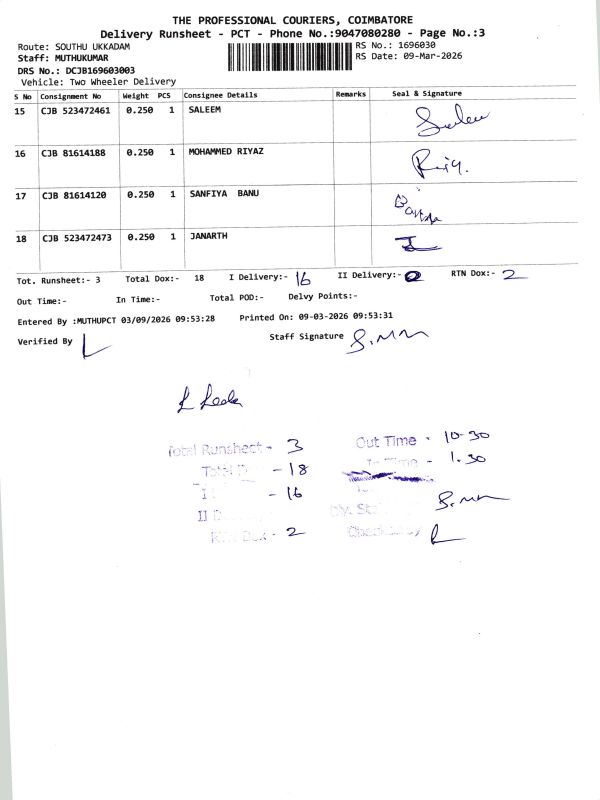 THE PROFESSIONAL COURIERS, COIMBATORE
Delivery Runsheet - PCT - Phone No.:9047080280 - Page No.:3
Route: SOUTHU UKKADAM
RS No.: 1696030
Staff: MUTHUKUMAR
RS Date: 09-Mar-2026
DRS No.: DCJB169603003
Vehicle: Two Wheeler Delivery
S No Consignment No Weight PCS Consignee Details Remarks Seal & Signature
15 CJB 523472461 0.250 1 SALEEM
16 CJB 81614188 0.250 1 MOHAMMED RIYAZ
17 CJB 81614120 0.250 1 SANFIYA BANU
18 CJB 523472473 0.250 1 JANARTH
Tot. Runsheet:- 3 Total Dox:- 18 I Delivery:- 16 II Delivery:- 0 RTN Dox:- 2
Out Time:- In Time:- Total POD:- Delvy Points:-
Entered By :MUTHUPCT 03/09/2026 09:53:28 Printed On: 09-03-2026 09:53:31
Verified By Staff Signature
Total Runsheet - 3 Out Time - 10-30
Total - 18 In Time - 1.30
I - 16
II
Dox - 2